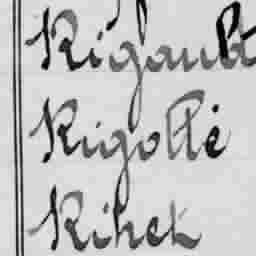 Rigault
Rigollé
Rihet